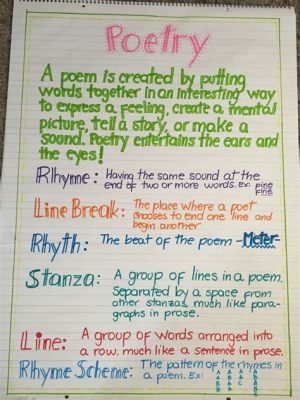 Poetry
A poem is created by putting
words together in an interesting way
to express a feeling, create a mental
picture, tell a story, or make a
sound. Poetry entertains the ears and
the eyes!
Rhyme: Having the same sound at the
end of two or more words. Ex: pine
fine
Line Break: The place where a poet
chooses to end one line and
begin another
Rhyth: The beat of the poem -Meter-
Stanza: A group of lines in a poem.
Separated by a space from
other stanzas, much like para-
graphs in prose.
Line: A group of words arranged into
a row, much like a sentence in prose.
Rhyme Scheme: The pattern of the rhymes in
a poem. Ex: